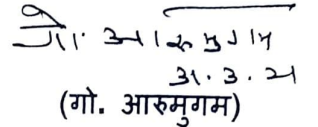 गो. आरुमुगम
31.3.21
(गो. आरुमुगम)